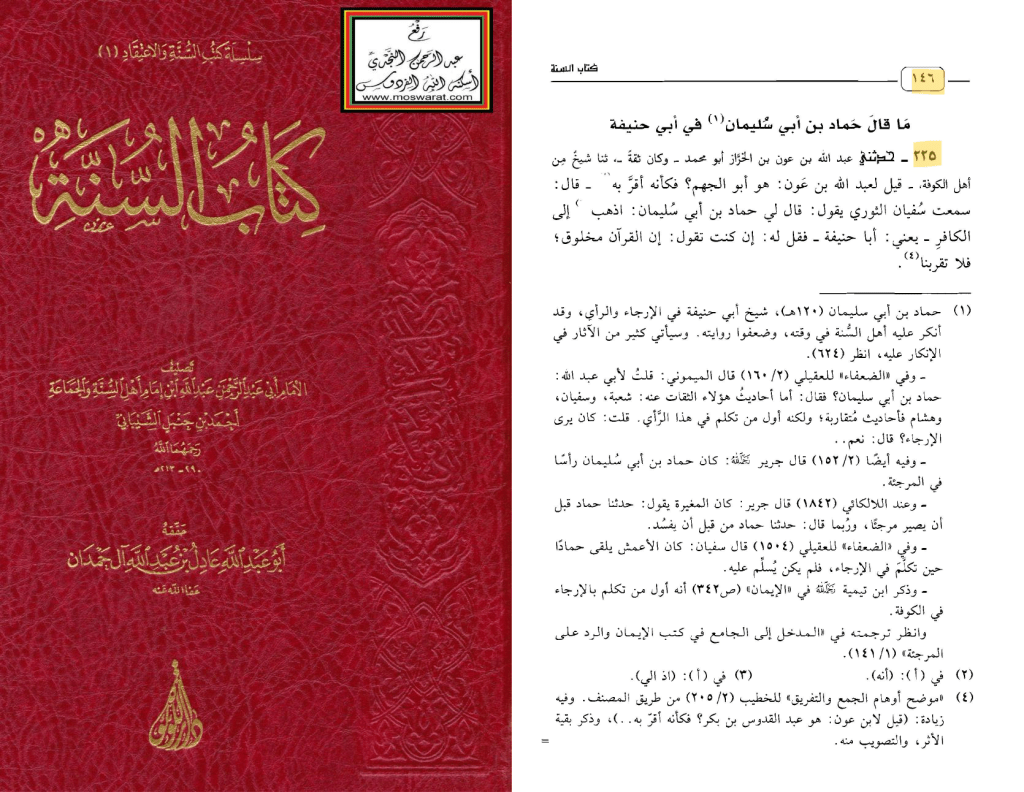 سلسلة كتب السنة والاعتقاد (١)
رفع
عبد الرحمن النجدي
أسكنه الله الفردوس
www.moswarat.com
كتاب السنة
تصنيف
الإمام أبي عبد الرحمن عبد الله ابن إمام أهل السنة والجماعة
أحمد بن حنبل الشيباني
رحمهما الله
٢١٣ـ ٢٩٠هـ
حققه
أبو عبد الله عادل بن عبد الله آل حمدان
عفا الله عنه
دار اللؤلؤة
١٤٦
كتاب السنة
مَا قالَ حَماد بن أبي سُليمان(١) في أبي حنيفة
٢٣٥ ـ حدثني عبد الله بن عون بن الخرَّاز أبو محمد ـ وكان ثقةً ـ، ثنا شيخٌ مِن
أهل الكوفة. ـ قيل لعبد الله بن عَون: هو أبو الجهم؟ فكأنه أقرَّ به ـ قال:
سمعت سُفيان الثوري يقول: قال لي حماد بن أبي سُليمان: اذهب إلى
الكافرِ ـ يعني: أبا حنيفة ـ فقل له: إن كنت تقول: إن القرآن مخلوق؛
فلا تقربنا(٤).
(١) حماد بن أبي سليمان (١٢٠هـ)، شيخ أبي حنيفة في الإرجاء والرأي، وقد
أنكر عليه أهل السُّنة في وقته، وضعفوا روايته. وسيأتي كثير من الآثار في
الإنكار عليه، انظر (٦٢٤).
ـ وفي «الضعفاء» للعقيلي (٢/ ١٦٠) قال الميموني: قلتُ لأبي عبد الله:
حماد بن أبي سليمان؟ فقال: أما أحاديثُ هؤلاء الثقات عنه: شعبة، وسفيان،
وهشام فأحاديث مُتقاربة؛ ولكنه أول من تكلم في هذا الرَّأي. قلت: كان يرى
الإرجاء؟ قال: نعم..
ـ وفيه أيضًا (٢/ ١٥٢) قال جرير رَحِمَهُ اللهُ: كان حماد بن أبي سُليمان رأسًا
في المرجئة.
ـ وعند اللالكائي (١٨٤٢) قال جرير: كان المغيرة يقول: حدثنا حماد قبل
أن يصير مرجئًا، ورُبما قال: حدثنا حماد من قبل أن يفسُد.
ـ وفي «الضعفاء» للعقيلي (١٥٠٤) قال سفيان: كان الأعمش يلقى حمادًا
حين تكلَّمَ في الإرجاء، فلم يكن يُسلِّم عليه.
ـ وذكر ابن تيمية رَحِمَهُ اللهُ في «الإيمان» (ص٣٤٢) أنه أول من تكلم بالإرجاء
في الكوفة.
وانظر ترجمته في «المدخل إلى الجامع في كتب الإيمان والرد على
المرجئة» (١/ ١٤١).
(٢) في (أ): (أنه). (٣) في (أ): (اذ الي).
(٤) «موضح أوهام الجمع والتفريق» للخطيب (٢/ ٢٠٥) من طريق المصنف. وفيه
زيادة: (قيل لابن عون: هو عبد القدوس بن بكر؟ فكأنه أقرّ به..)، وذكر بقية
الأثر، والتصويب منه. =